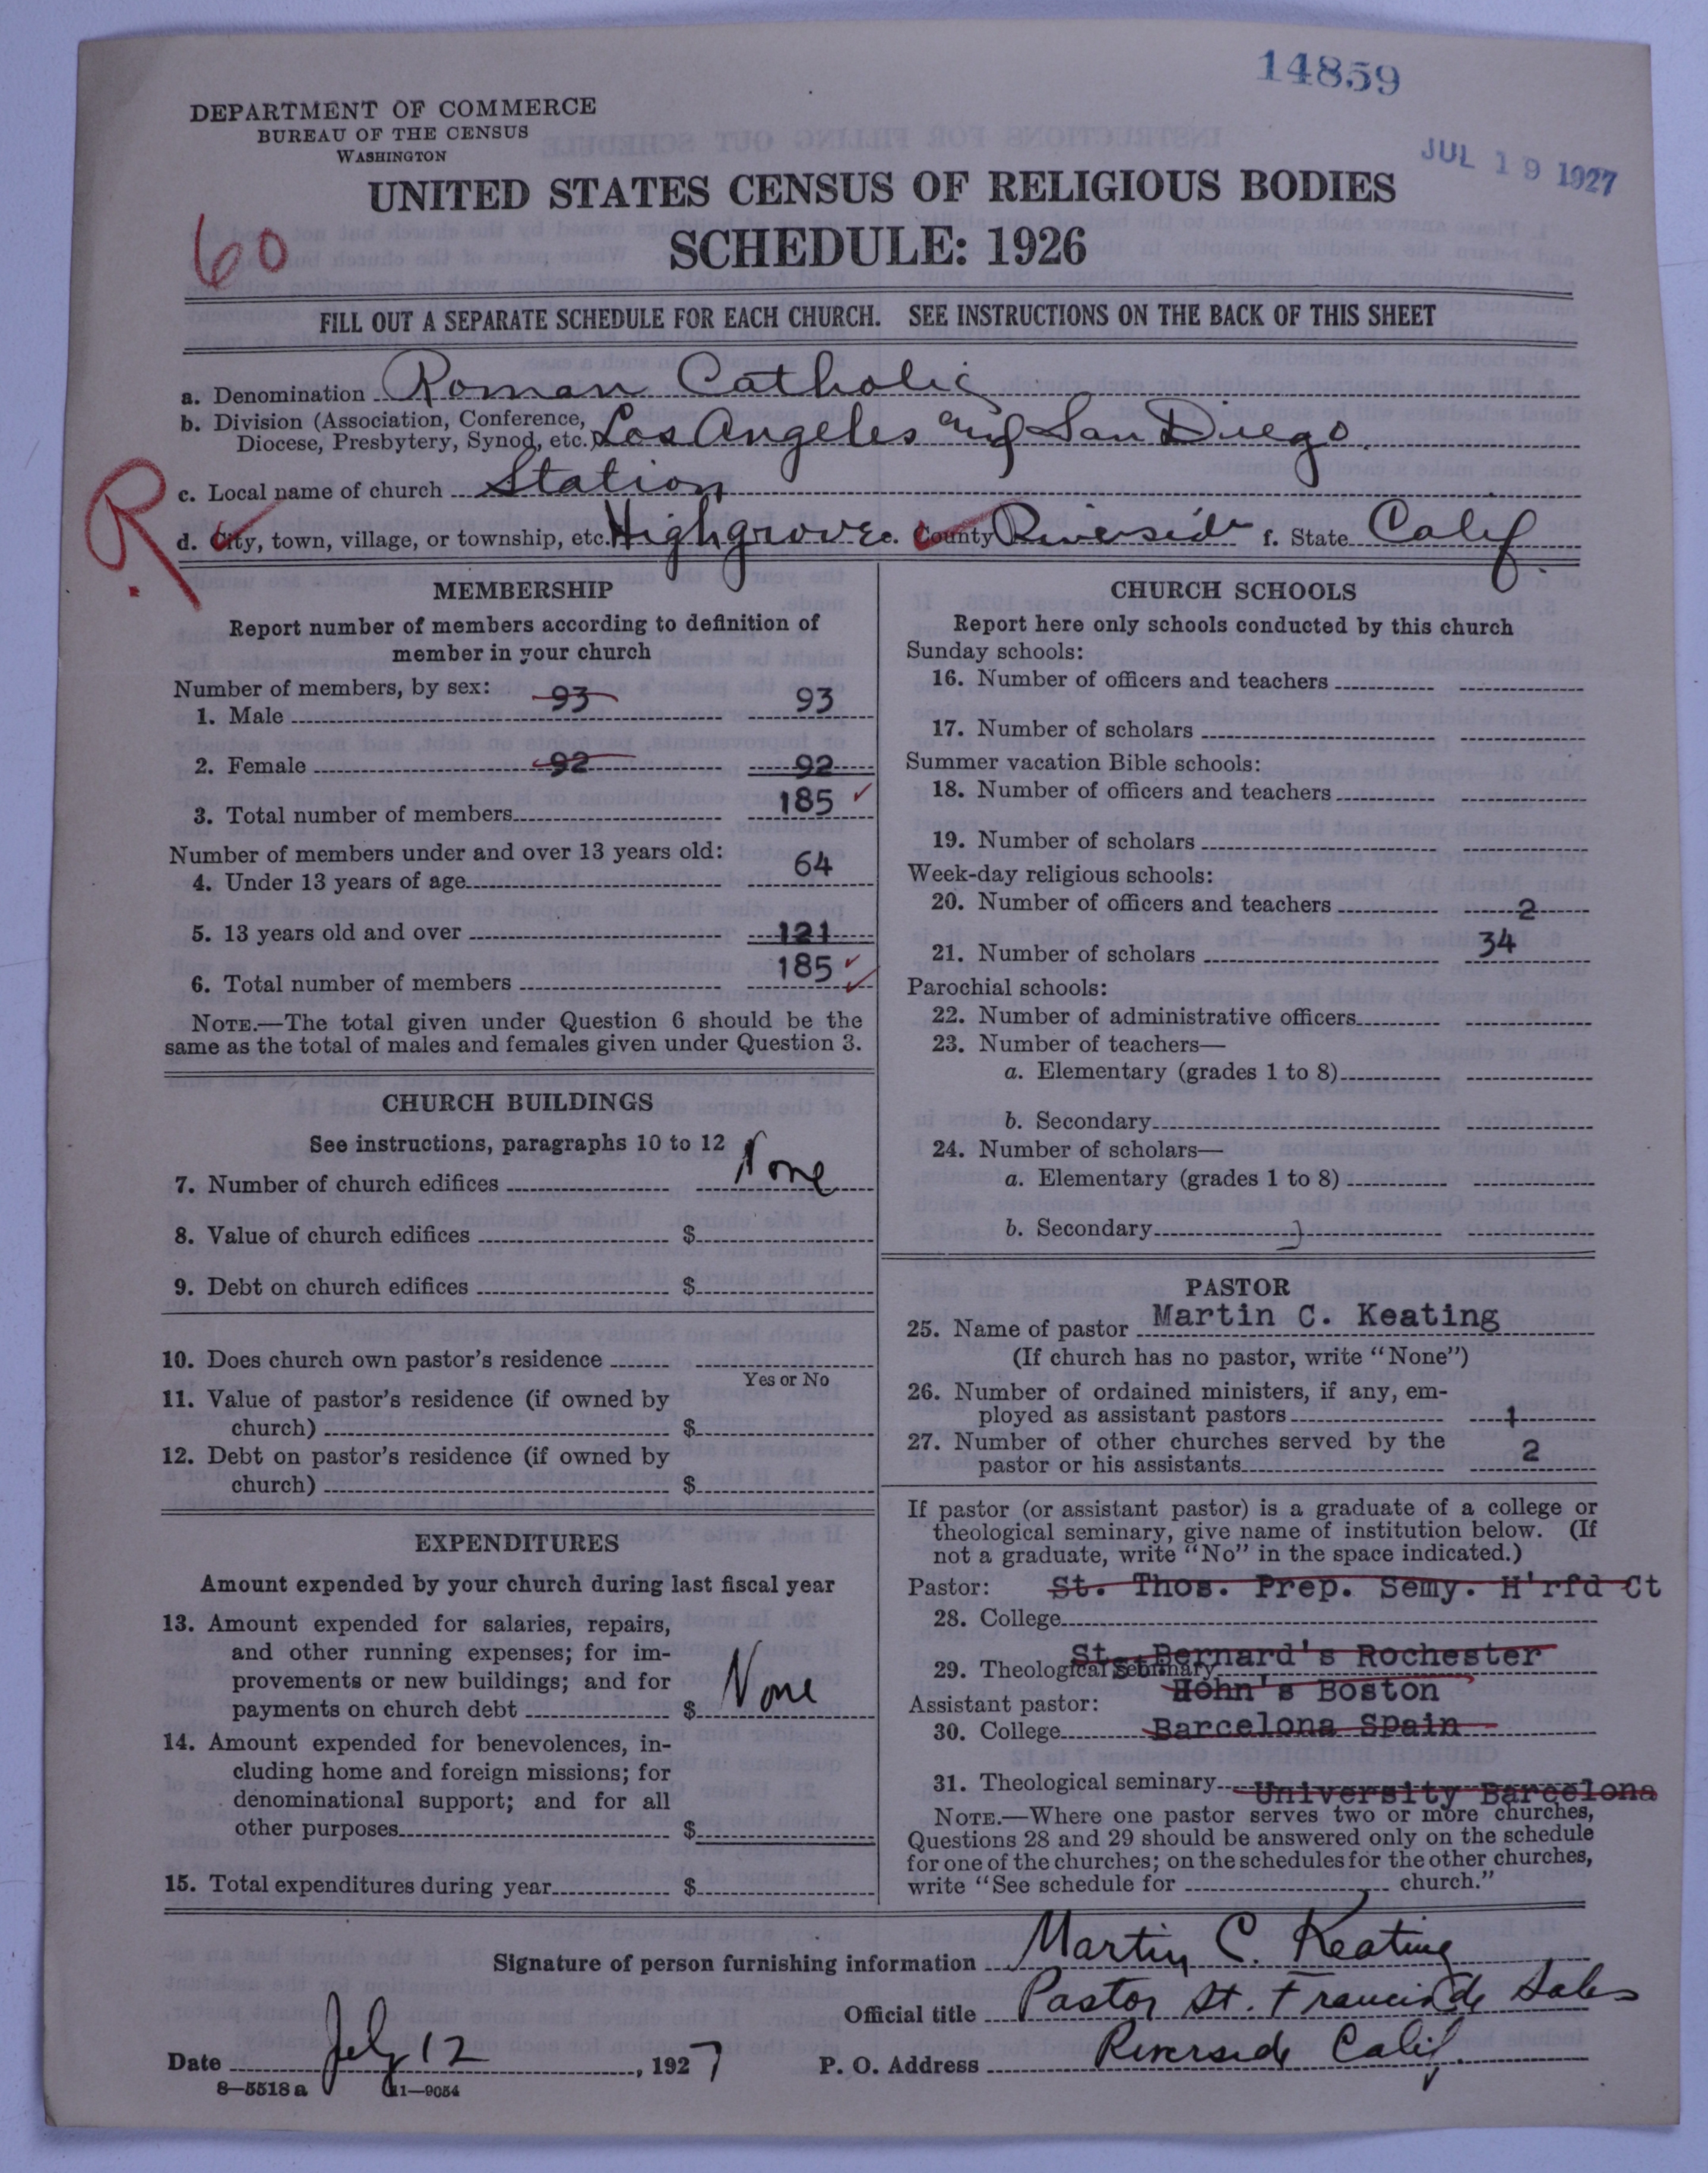 14859
DEPARTMENT OF COMMERCE
BUREAU OF THE CENSUS
WASHINGTON
JUL 19 1927
UNITED STATES CENSUS OF RELIGIOUS BODIES
60
SCHEDULE: 1926
FILL OUT A SEPARATE SCHEDULE FOR EACH CHURCH. SEE INSTRUCTIONS ON THE BACK OF THIS SHEET
a. Denomination Roman Catholic
b. Division (Association, Conference,
Diocese, Presbytery, Synod, etc.) Los Angeles and San Diego
R
c. Local name of church Station
d. City, town, village, or township, etc. Highgrove e. County Riverside f. State Calif
MEMBERSHIP
Report number of members according to definition of
member in your church
Number of members, by sex:
1. Male 93 93
2. Female 92 92
3. Total number of members 185
Number of members under and over 13 years old:
4. Under 13 years of age 64
5. 13 years old and over 121
6. Total number of members 185
NOTE.—The total given under Question 6 should be the
same as the total of males and females given under Question 3.
CHURCH BUILDINGS
See instructions, paragraphs 10 to 12
7. Number of church edifices None
8. Value of church edifices $
9. Debt on church edifices $
10. Does church own pastor's residence
Yes or No
11. Value of pastor's residence (if owned by
church) $
12. Debt on pastor's residence (if owned by
church) $
EXPENDITURES
Amount expended by your church during last fiscal year
13. Amount expended for salaries, repairs,
and other running expenses; for im-
provements or new buildings; and for
payments on church debt $ None
14. Amount expended for benevolences, in-
cluding home and foreign missions; for
denominational support; and for all
other purposes $
15. Total expenditures during year $
CHURCH SCHOOLS
Report here only schools conducted by this church
Sunday schools:
16. Number of officers and teachers
17. Number of scholars
Summer vacation Bible schools:
18. Number of officers and teachers
19. Number of scholars
Week-day religious schools:
20. Number of officers and teachers 2
21. Number of scholars 34
Parochial schools:
22. Number of administrative officers
23. Number of teachers—
a. Elementary (grades 1 to 8)
b. Secondary
24. Number of scholars—
a. Elementary (grades 1 to 8)
b. Secondary
PASTOR
25. Name of pastor Martin C. Keating
(If church has no pastor, write "None")
26. Number of ordained ministers, if any, em-
ployed as assistant pastors 1
27. Number of other churches served by the
pastor or his assistants 2
If pastor (or assistant pastor) is a graduate of a college or
theological seminary, give name of institution below. (If
not a graduate, write "No" in the space indicated.)
Pastor: St. Thos. Prep. Semy. H'rfd Ct
28. College
St. Bernard's Rochester
29. Theological seminary
Hohn's Boston
Assistant pastor:
30. College Barcelona Spain
31. Theological seminary University Barcelona
NOTE.—Where one pastor serves two or more churches,
Questions 28 and 29 should be answered only on the schedule
for one of the churches; on the schedules for the other churches,
write "See schedule for church."
Signature of person furnishing information Martin C. Keating
Official title Pastor St. Francis de Sales
Date July 12, 1927 P. O. Address Riverside Calif.
8—5518 a 11—9054